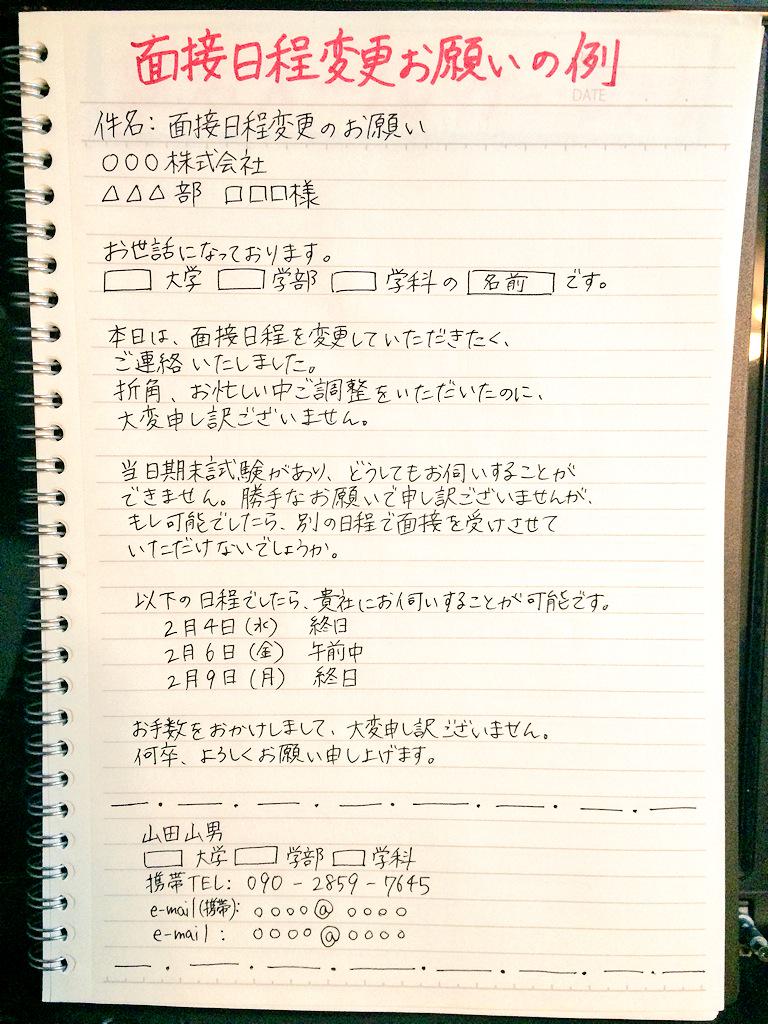 面接日程変更お願いの例
DATE
件名: 面接日程変更のお願い
○○○株式会社
△△△部 □□□様
お世話になっております。
□大学 □学部 □学科の 名前 です。
本日は、面接日程を変更していただきたく、
ご連絡いたしました。
折角、お忙しい中ご調整をいただいたのに、
大変申し訳ございません。
当日期末試験があり、どうしてもお伺いすることが
できません。勝手なお願いで申し訳ございませんが、
もし可能でしたら、別の日程で面接を受けさせて
いただけないでしょうか。
以下の日程でしたら、貴社にお伺いすることが可能です。
2月4日(水) 終日
2月6日(金) 午前中
2月9日(月) 終日
お手数をおかけしまして、大変申し訳ございません。
何卒、よろしくお願い申し上げます。
山田山男
□大学 □学部 □学科
携帯TEL: 090-2859-7645
e-mail(携帯): ○○○○@○○○○
e-mail: ○○○○@○○○○